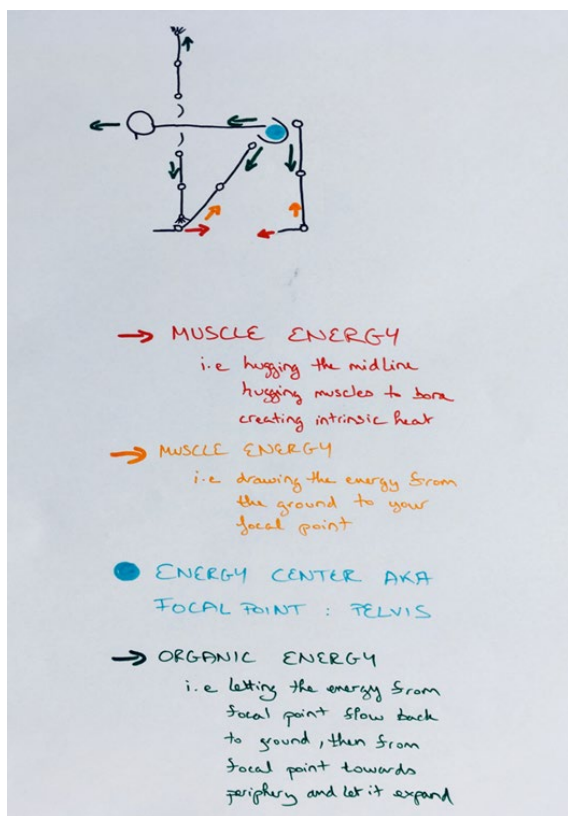 MUSCLE ENERGY
i.e hugging the midline
hugging muscles to bone
creating intrinsic heat
MUSCLE ENERGY
i.e drawing the energy from
the ground to your
focal point
ENERGY CENTER AKA
FOCAL POINT : PELVIS
ORGANIC ENERGY
i.e letting the energy from
focal point flow back
to ground, then from
focal point towards
periphery and let it expand